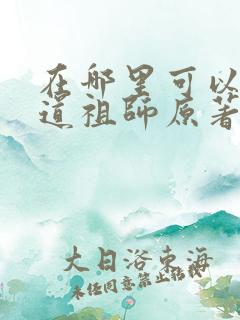 在哪里可以
道祖師原著
大日浴東海
未任同意禁止转载